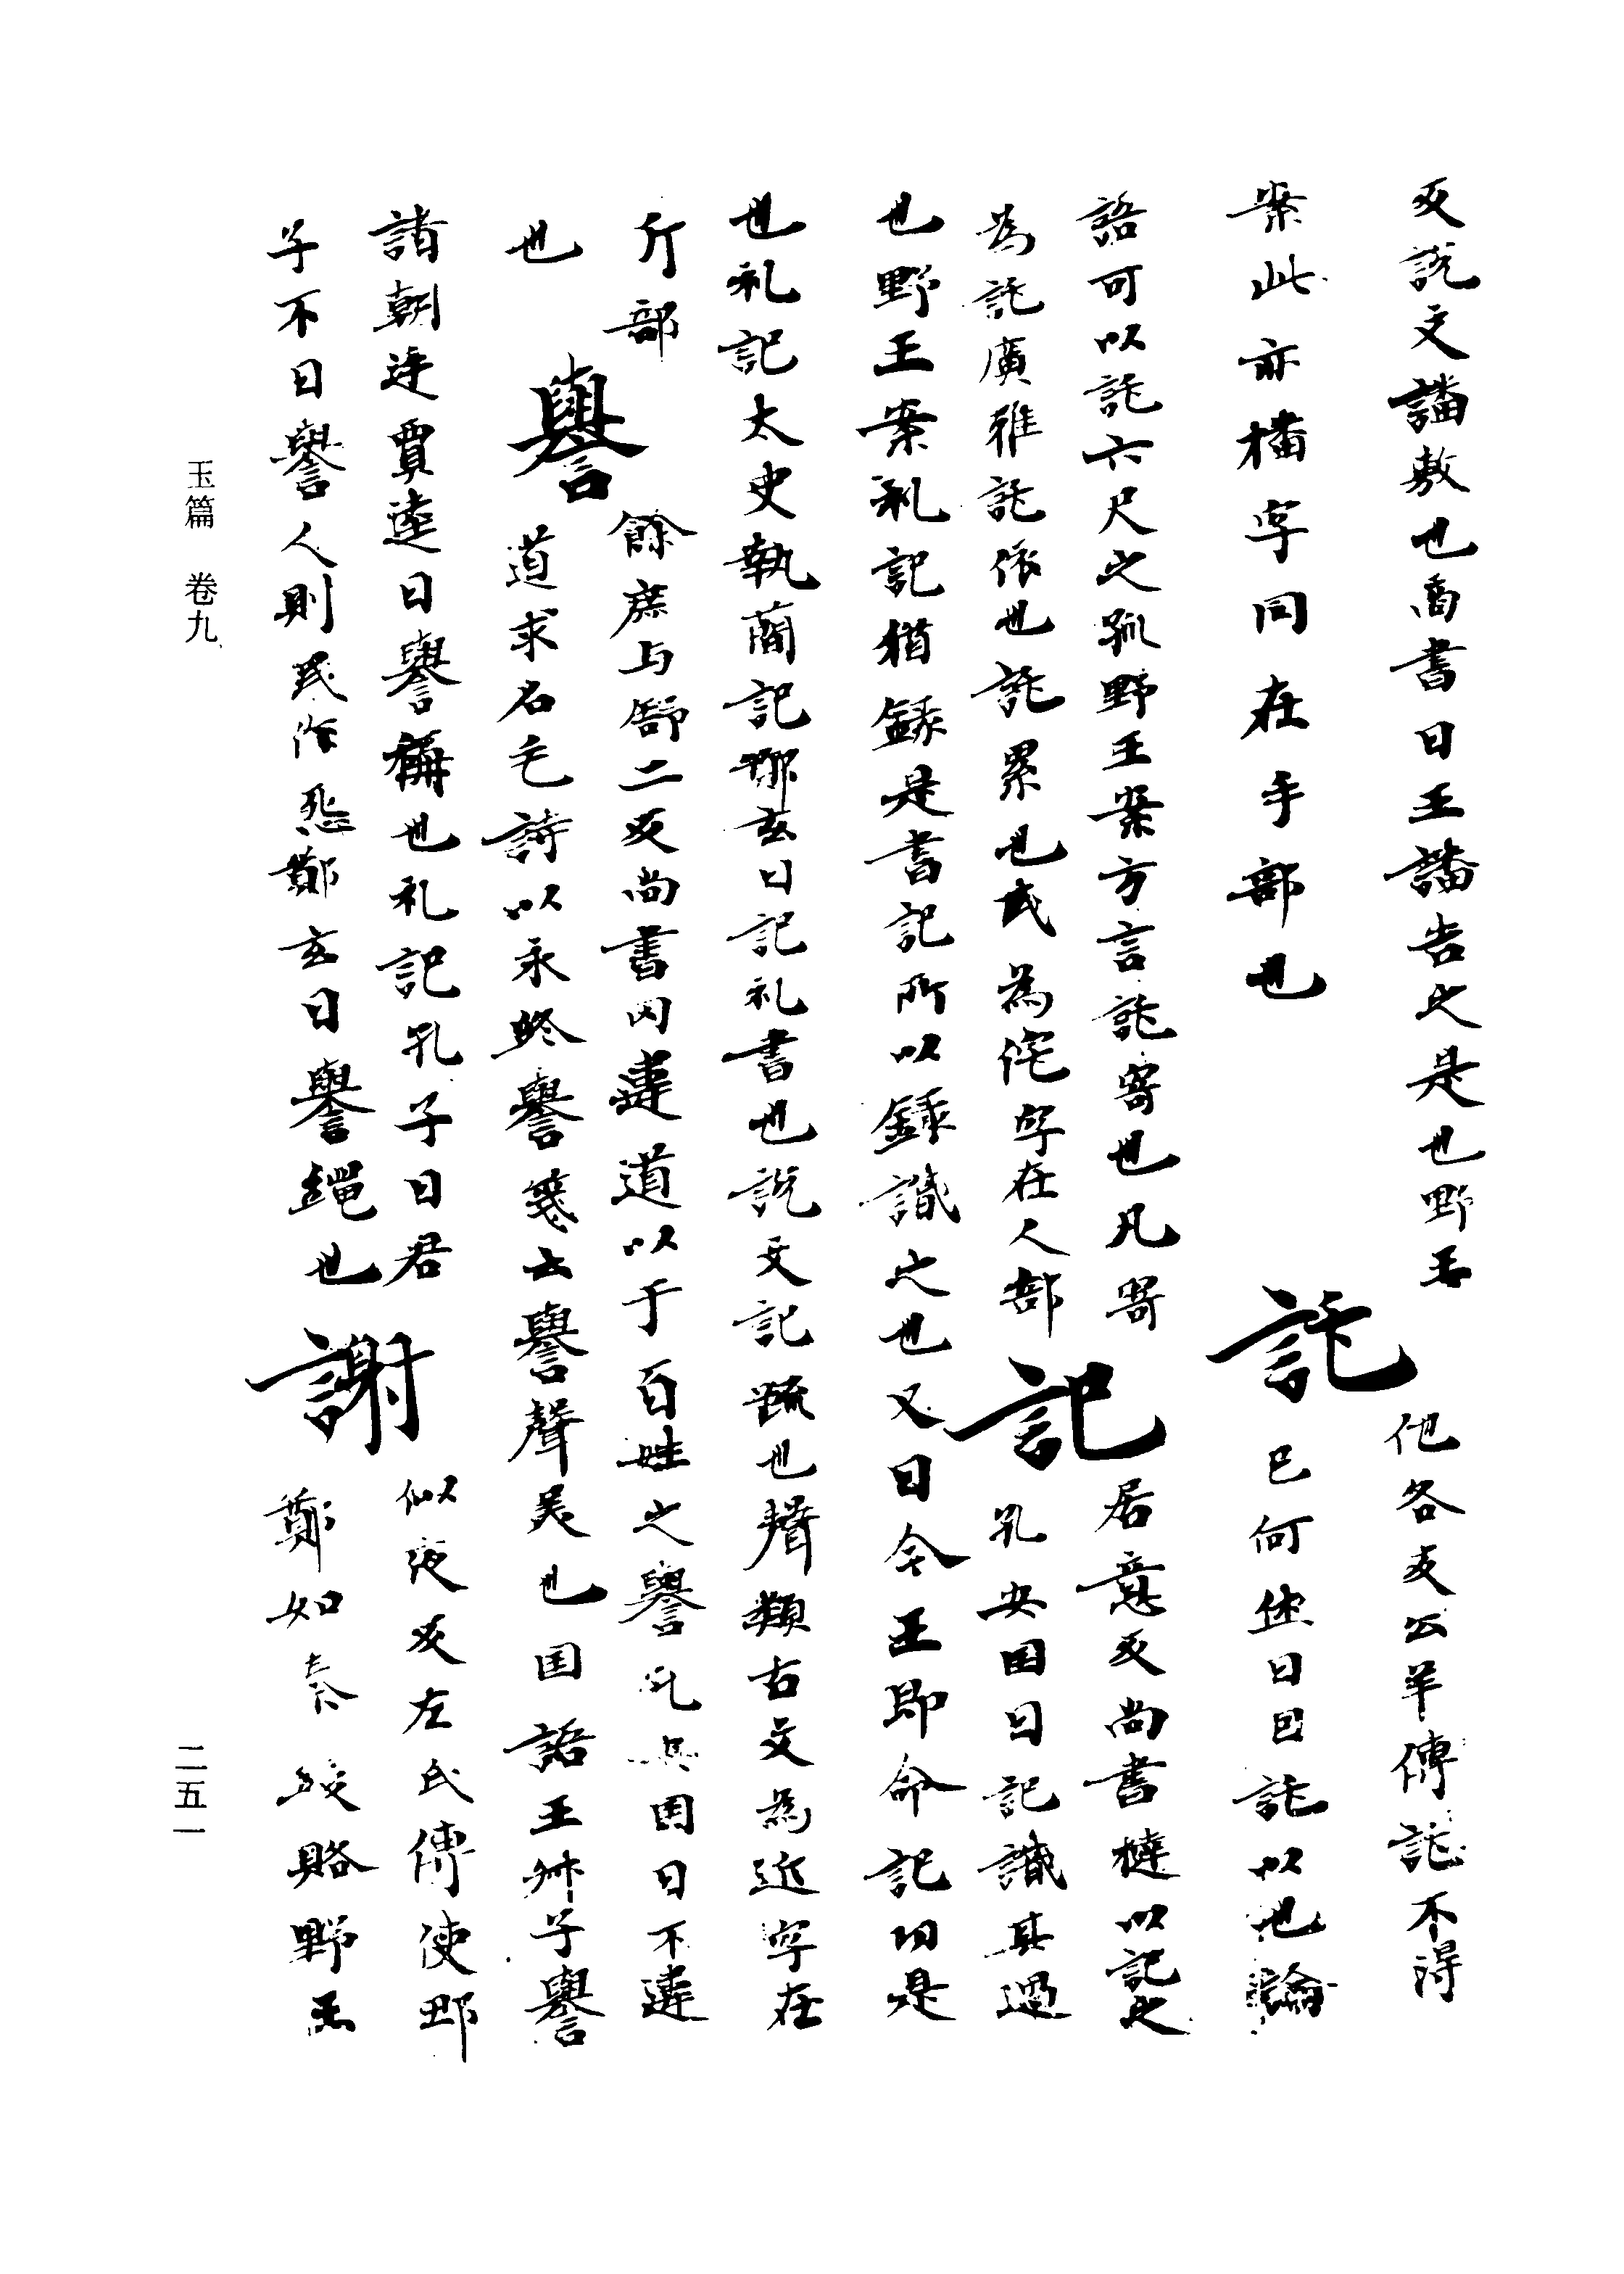 反說文譒敷也商書曰王譒告之是也野王
案此亦播字同在手部也
託
他各反公羊傳託不得
已何休曰因託以也論
語可以託六尺之孤野王案方言託寄也凡寄
為託廣雅託依也託累也或為侂字在人部
記
居意反尚書撻以記之
孔安国曰記識其過
也野王案礼記猶録是書記所以録識之也又曰今王即命記功是
也礼記太史執蕳記鄭玄曰記礼書也說文記疏也聲類古文為近字在
斤部
也
譽
餘庶与舒二反尚書冈違道以于百姓之譽孔安国曰不違
道求名毛詩以永終譽箋云譽聲美也国語王叔子譽
諸朝逹賈逵曰譽稱也礼記孔子曰君
子不曰譽人則民作恐鄭玄曰譽繩也
謝
似夜反左氏傳使
鄭如秦 賂野王
玉篇 卷九
二五一